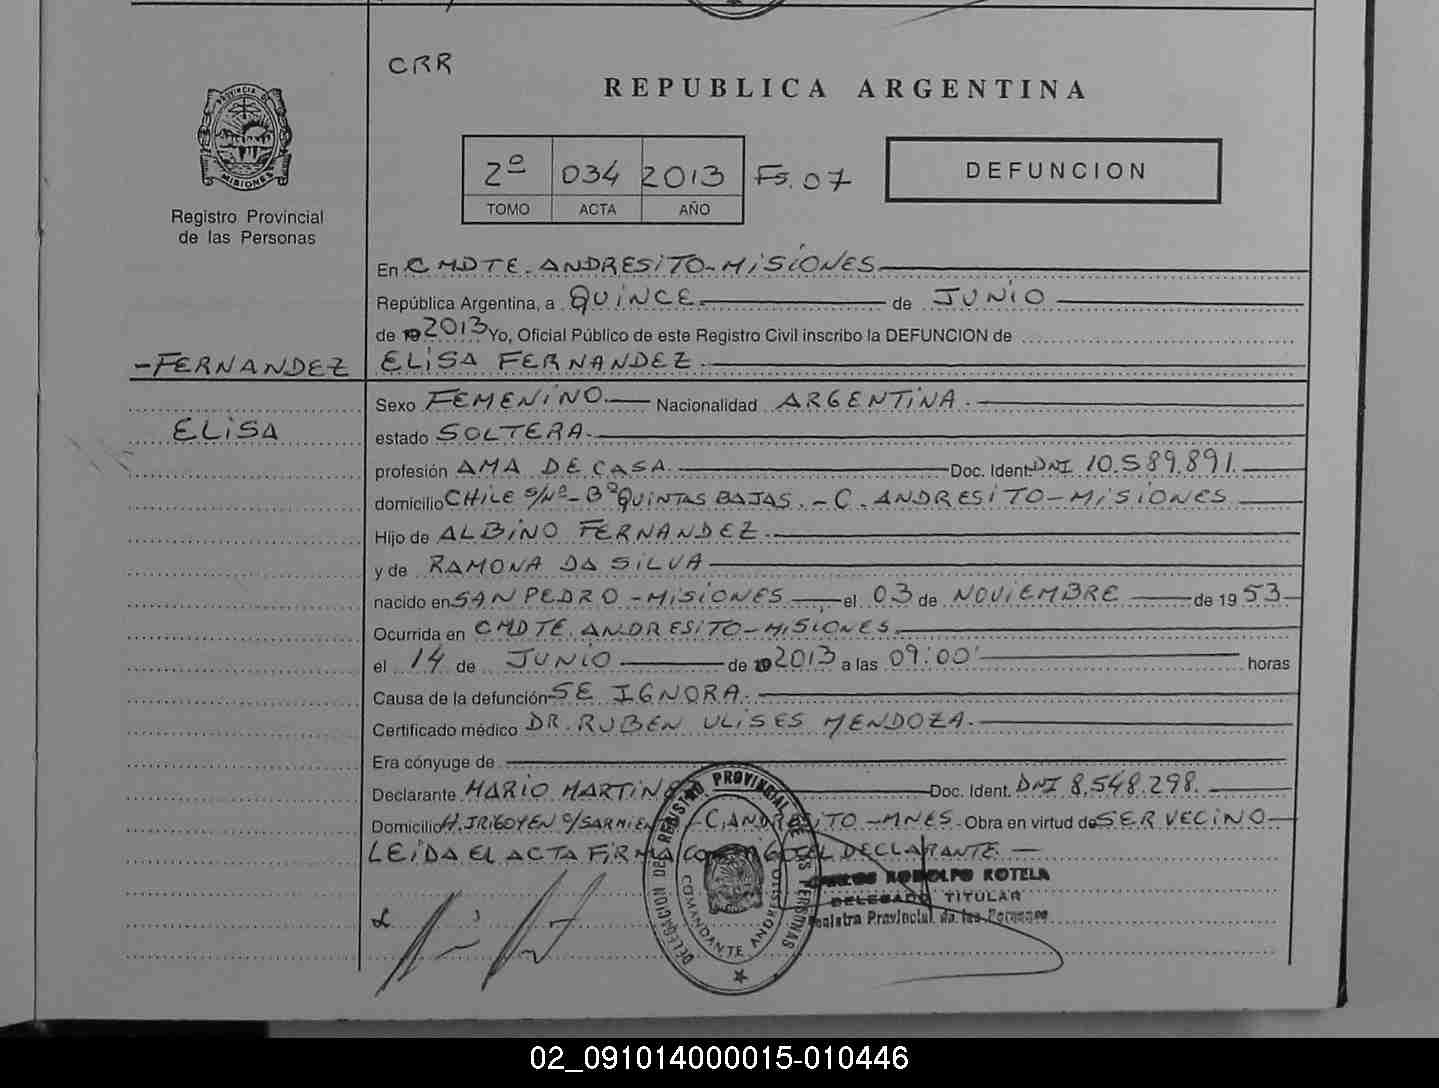 CRR
REPUBLICA ARGENTINA
PROVINCIA DE
MISIONES
Registro Provincial
de las Personas
2º 034 2013 Fs. 07
TOMO ACTA AÑO
DEFUNCION
En CMDTE. ANDRESITO-MISIONES
República Argentina, a QUINCE. de JUNIO
de 19 2013 Yo, Oficial Público de este Registro Civil inscribo la DEFUNCION de
-FERNANDEZ ELISA FERNANDEZ.
Sexo FEMENINO. Nacionalidad ARGENTINA.
ELISA
estado SOLTERA.
profesión AMA DE CASA. Doc. Ident. DNI 10.589.891.
domicilio CHILE S/Nº-Bº QUINTAS BAJAS.-C. ANDRESITO-MISIONES
Hijo de ALBINO FERNANDEZ.
y de RAMONA DA SILVA
nacido en SAN PEDRO-MISIONES el 03 de NOVIEMBRE de 19 53
Ocurrida en CMDTE. ANDRESITO-MISIONES.
el 14 de JUNIO de 19 2013 a las 09:00' horas
Causa de la defunción SE IGNORA.
Certificado médico DR. RUBEN ULISES MENDOZA.
Era cónyuge de
Declarante MARIO MARTIN Doc. Ident. DNI 8.548.298.
Domicilio H. IRIGOYEN C/SARMIEN C. ANDRESITO-MNES. Obra en virtud de SER VECINO
LEIDA EL ACTA FIRMA CONMIGO EL DECLARANTE.
DELEGACION DEL REGISTRO PROVINCIAL DE LAS PERSONAS
COMANDANTE ANDRESITO
CARLOS RODOLFO ROTELA
DELEGADO TITULAR
Registro Provincial de las Personas
02_091014000015-010446